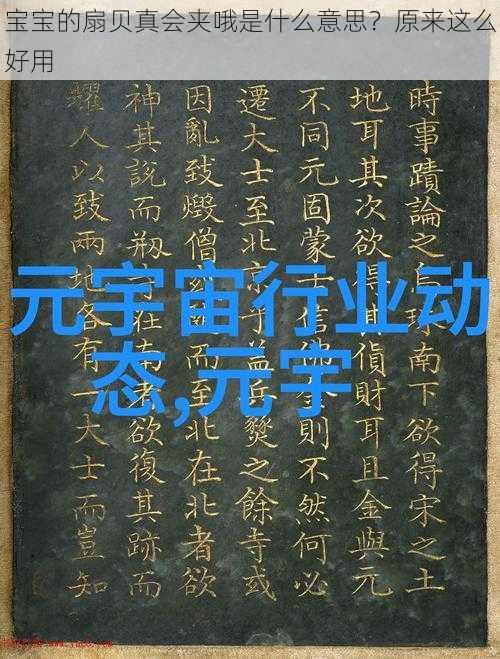 宝宝的扇贝真会夹哦是什么意思？原来这么
好用
元宇宙行业动
态,元宇
時事蹟論之南下欲得宋之土
地耳其次欲得其貨財耳且金與元
不同元固蒙信佛金則不然何必
遷大士至北京于益兵燹之餘寺或
因亂致燬僧而至北在北者欲
神其說而在南者欲復其跡而
耀人以致兩地各有一大士而豈知